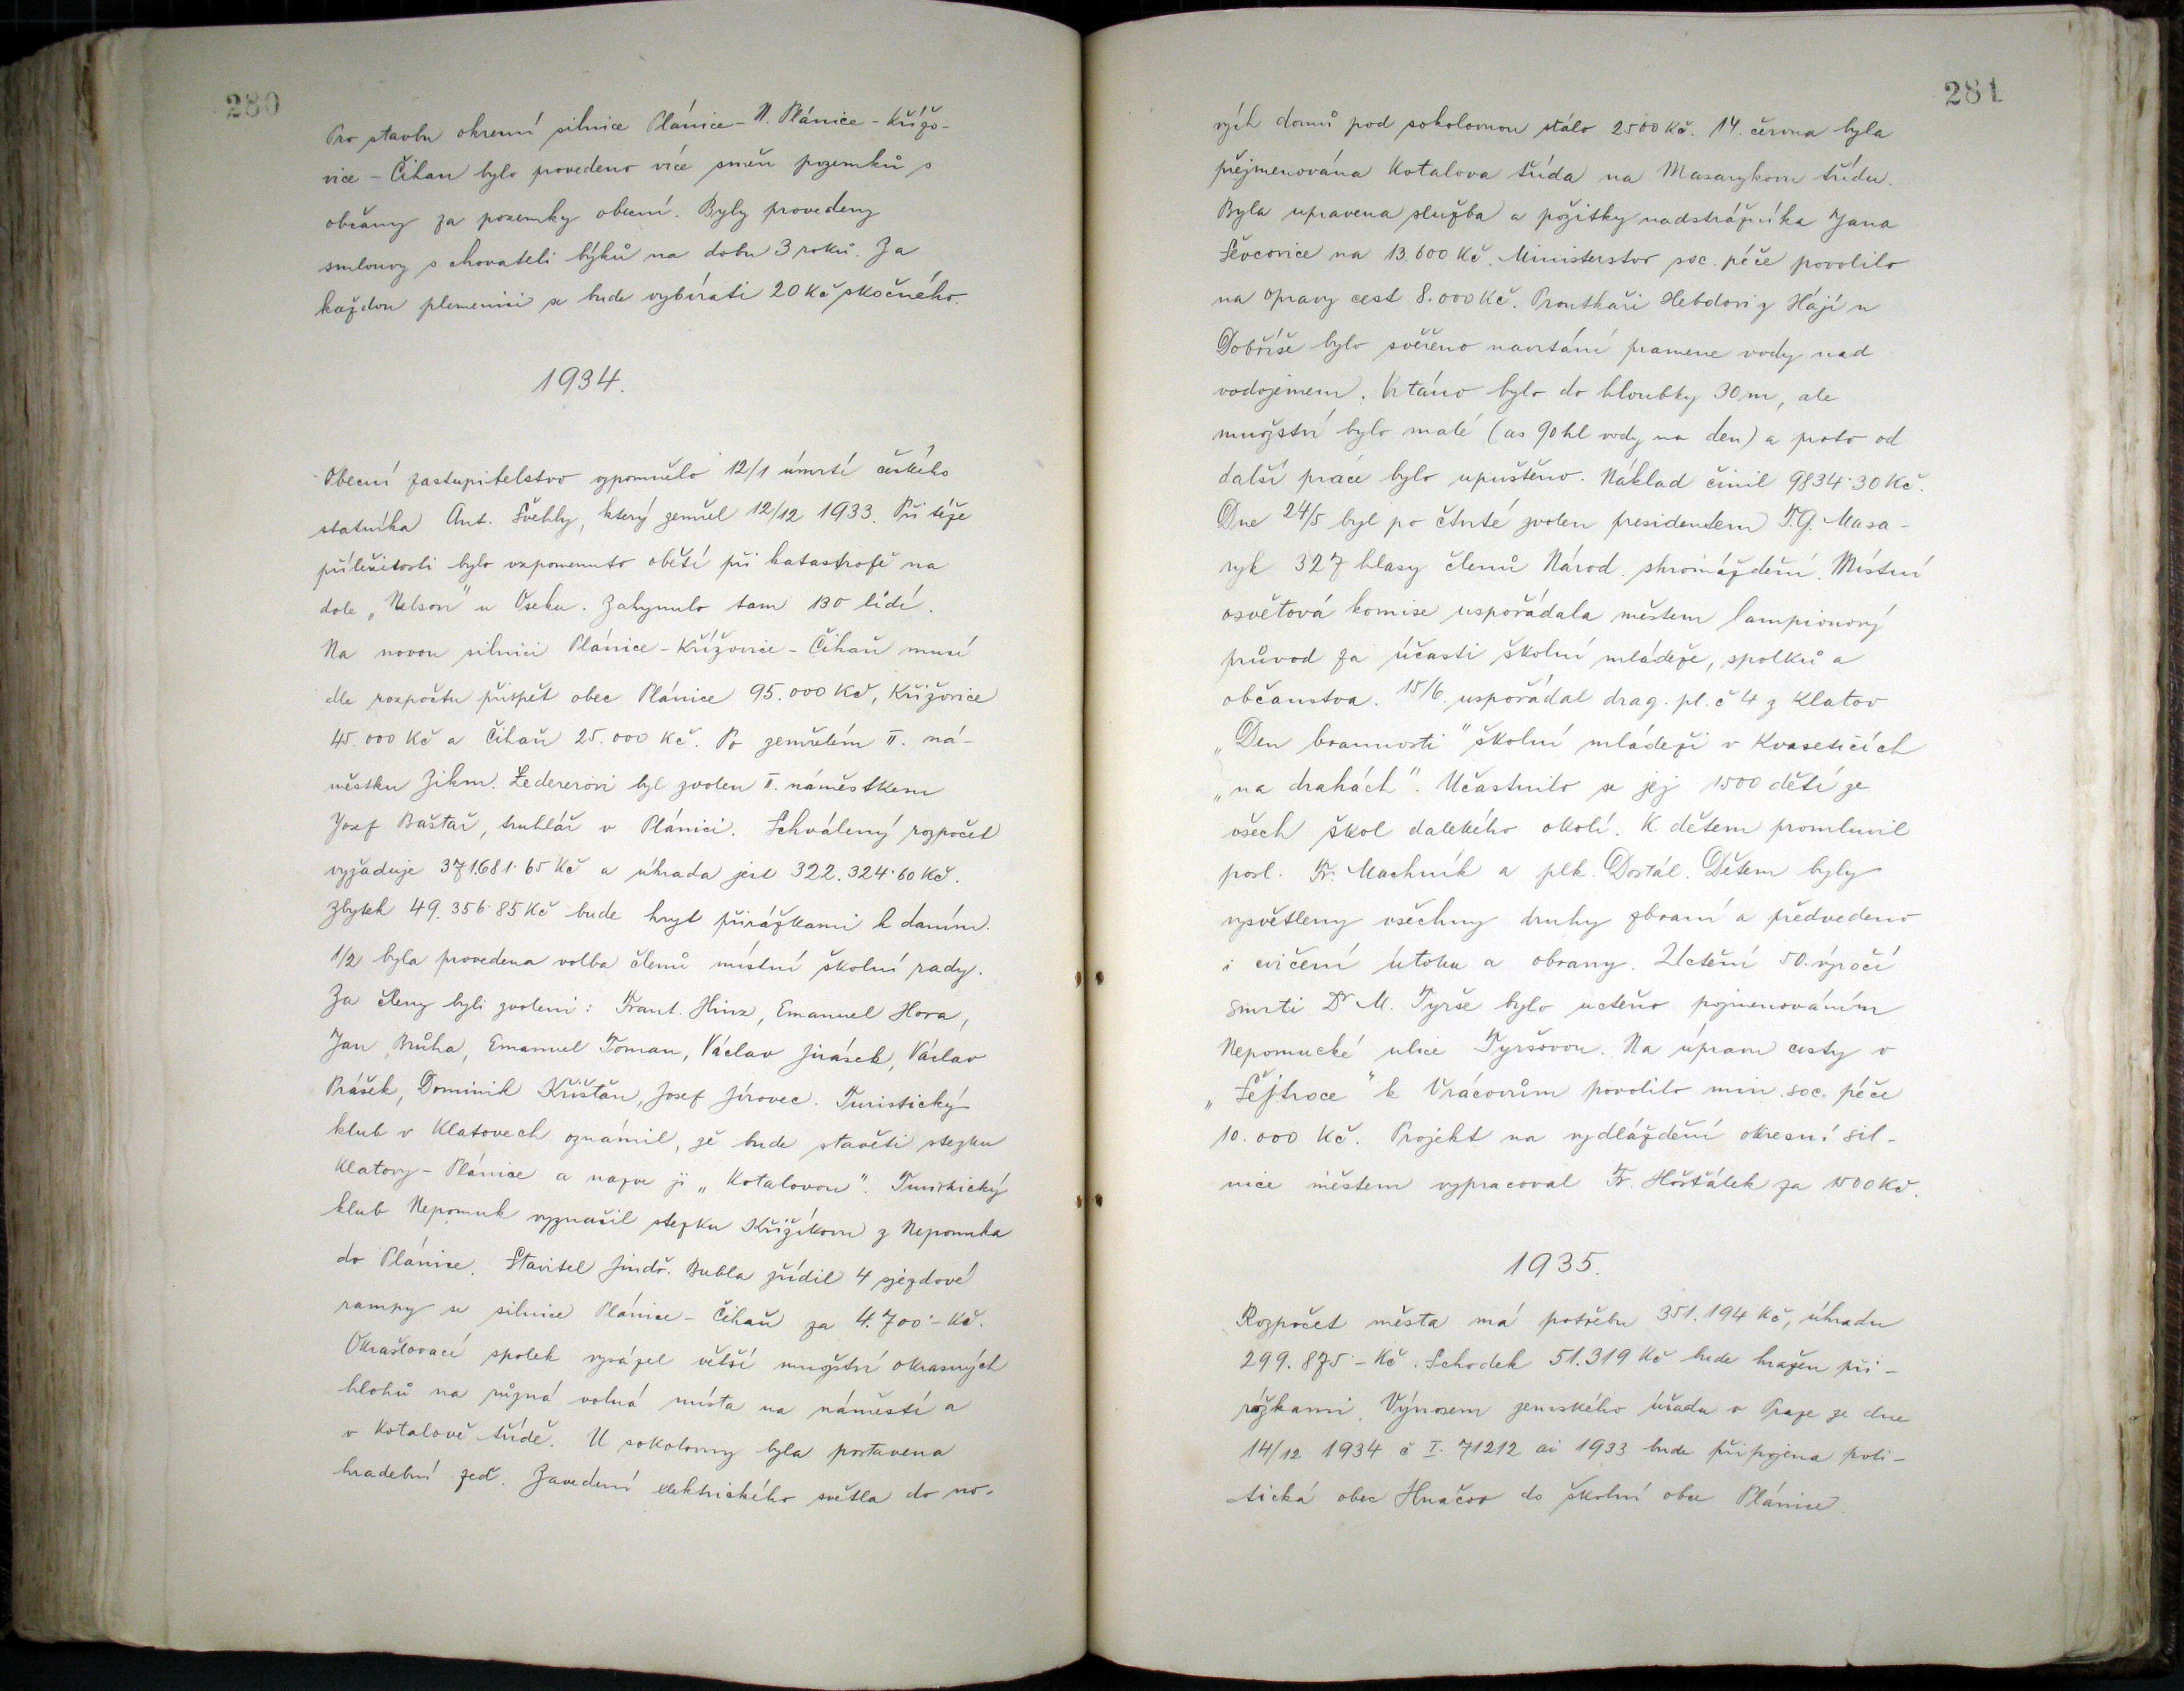 280
Pro stavbu okresní silnice Plánice - N. Plánice - Křížo-
vice - Čihaň bylo provedeno více směn pozemků s
občany za pozemky obecní. Byly provedeny
smlouvy s chovateli býků na dobu 3 roků. Za
každou plemenici se bude vybírati 20 Kč skočného.
1934.
Obecní zastupitelstvo vzpomnělo 12/1 úmrtí českého
statníka Ant. Švehly, který zemřel 12/12 1933. Při téže
příležitosti bylo vzpomenuto obětí při katastrofě na
dole „Nelson" u Oseka. Zahynulo tam 130 lidí.
Na novou silnici Plánice - Křížovice - Čihaň musí
dle rozpočtu přispět obec Plánice 95.000 Kč, Křížovice
45.000 Kč a Čihaň 25.000 Kč. Po zemřelém II. ná-
městku Zikm. Ledererovi byl zvolen II. náměstkem
Josef Baštař, truhlář v Plánici. Schválený rozpočet
vyžaduje 371.681·65 Kč a úhrada jest 322.324·60 Kč.
Zbytek 49.356·85 Kč bude kryt přirážkami k daním.
1/2 byla provedena volba členů místní školní rady.
Za členy byli zvoleni: Frant. Hinz, Emanuel Hora,
Jan Brůha, Emanuel Toman, Václav Jirásek, Václav
Prášek, Dominik Křišťan, Josef Jírovec. Turistický
klub v Klatovech oznámil, že bude stavěti stezku
Klatovy - Plánice a nazve ji „Kotalovou". Turistický
klub Nepomuk vyznačil stezku Křižíkovu z Nepomuka
do Plánice. Stavitel Jindř. Bubla zřídil 4 sjezdové
rampy se silnice Plánice - Čihaň za 4.700·- Kč.
Okrašlovací spolek vysázel větší množství okrasných
hlohů na různá volná místa na náměstí a
v Kotalově třídě. U sokolovny byla postavena
hradební zeď. Zavedení elektrického světla do no-
281
vých domů pod sokolovnou stálo 2500 Kč. 14. června byla
přejmenována Kotalova třída na Masarykovu třídu.
Byla upravena služba a požitky nadstrážníka Jana
Ševcovice na 13.600 Kč. Ministerstvo soc. péče povolilo
na opravy cest 8.000 Kč. Proutkaři Hebdovi z Hájí u
Dobříše bylo svěřeno navrtání pramene vody nad
vodojemem. Vrtáno bylo do hloubky 30 m, ale
množství bylo malé (as 90 hl vody na den) a proto od
další práce bylo upuštěno. Náklad činil 9834·30 Kč.
Dne 24/5 byl po čtvrté zvolen presidentem T.G. Masa-
ryk 327 hlasy členů Národ. shromáždění. Místní
osvětová komise uspořádala městem lampionový
průvod za účasti školní mládeže, spolků a
občanstva. 15/6. uspořádal drag. pl. č 4 z Klatov
„Den brannosti" školní mládeži v Kvaseticích
„na drahách". Účastnilo se jej 1500 dětí ze
všech škol dalekého okolí. K dětem promluvil
posl. Fr. Machník a plk. Dostál. Dětem byly
vysvětleny všechny druhy zbraní a předvedeno
i cvičení útoku a obrany. Uctění 50. výročí
smrti Dr M. Tyrše bylo uctěno pojmenováním
Nepomucké ulice Tyršovou. Na úpravu cesty v
„Šejtroce" k Vrácovům povolilo min. soc. péče
10.000 Kč. Projekt na vydláždění okresní sil-
nice městem vypracoval Fr. Hošťálek za 1500 Kč.
1935.
Rozpočet města má potřebu 351.194 Kč, úhradu
299.875·- Kč. Schodek 51.319 Kč bude hražen při-
rážkami. Výnosem zemského úřadu v Praze ze dne
14/12 1934 č I. 71212 ai 1933 bude připojena poli-
tická obec Hnačov do školní obce Plánice.